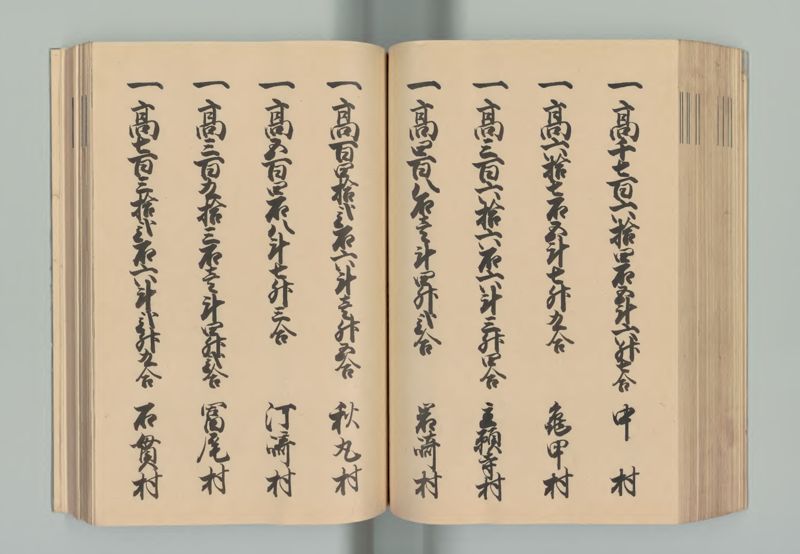 一高千七百六拾四石五斗六升七合 中村
一高六拾七石五斗七升九合 亀甲村
一高三百六拾六石六斗三升四合 立願寺村
一高四百八石壱斗四升弐合 岩崎村
一高百四拾弐石六斗壱升五合 秋丸村
一高五百四石八斗七升三合 河崎村
一高三百五拾三石壱斗四升弐合 冨尾村
一高七百三拾弐石六斗弐升九合 石貫村